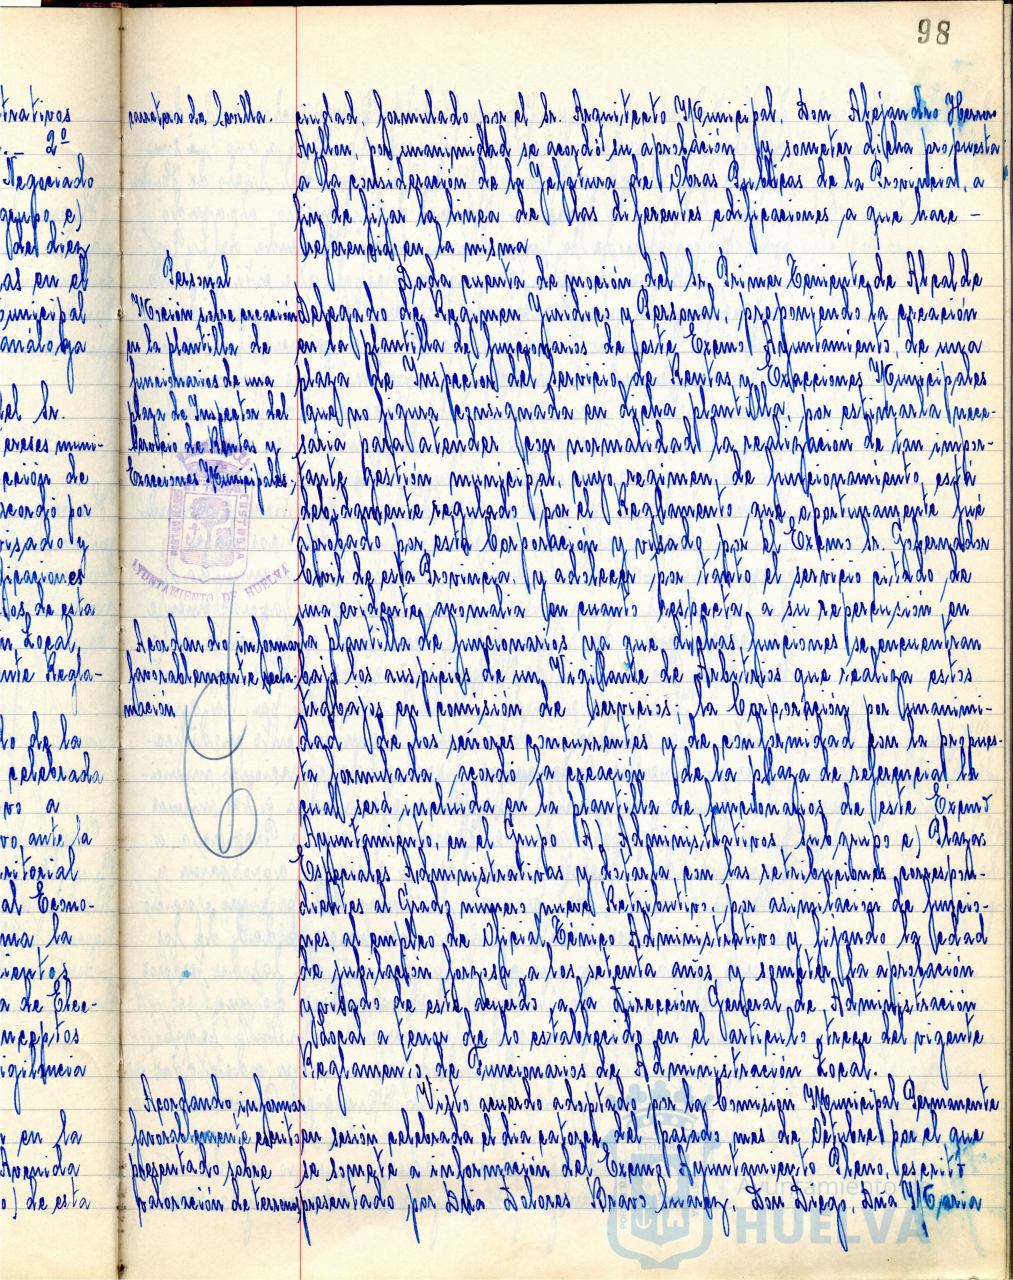 98
trativos
2º
Negociado
grupo, c)
del diez
as en el
municipal
análoga
del Sr.
ereses muni-
cación de
acordó por
visado y
ficaciones
dos, de esta
n Local,
nte Regla-
do de la
celebrada
vo a
vo, ante la
ritorial
al Econo-
ma, la
ientos
a de Elec-
nceptos
igilancia
r en la
Avenida
o) de esta
carretera de Sevilla.
Personal
Moción sobre creación
en la plantilla de
funcionarios de una
plaza de Inspector del
Servicio de Rentas y
Exacciones Municipales.
AYUNTAMIENTO DE HUELVA
Acordando informar
favorablemente
mación
Acordando informar
favorablemente escrito
presentado sobre
valoración de terrenos
ciudad, formulado por el Sr. Arquitecto Municipal, Don Alejandro Herrero
Ayllon, por unanimidad se acordó su aprobación y someter dicha propuesta
a la consideración de la Jefatura de Obras Públicas de la Provincia, a
fin de fijar la línea de las diferentes edificaciones a que hace –
referencia en la misma
Dada cuenta de moción del Sr. Primer Teniente de Alcalde
Delegado de Regimen Jurídico y Personal, proponiendo la creación
en la plantilla de funcionarios de este Excmo Ayuntamiento, de una
plaza de Inspector del Servicio de Rentas y Exacciones Municipales
que no figura consignada en dicha plantilla, por estimarla nece-
saria para atender con normalidad la realización de tan impor-
tante gestión municipal, cuyo regimen de funcionamiento está
debidamente regulado por el Reglamento que oportunamente fué
aprobado por esta Corporación y visado por el Excmo Sr. Gobernador
Civil de esta Provincia, y adolecer por tanto el servicio citado de
una evidente anomalía en cuanto respecta a su repercusión en
la plantilla de funcionarios ya que dichas funciones se encuentran
bajo los auspicios de un Vigilante de Arbitrios que realiza estos
trabajos en comisión de servicios; la Corporación por unanimi-
dad de los señores concurrentes y de conformidad con la propues-
ta formulada, acordó la creación de la plaza de referencia la
cual será incluida en la plantilla de funcionarios de este Excmo
Ayuntamiento, en el Grupo A) Administrativos, subgrupo c) Plazas
Especiales Administrativas y dotarla con las retribuciones correspon-
dientes al Grado número nueve Retributivo, por asimilación de funcio-
nes, al empleo de Oficial Técnico Administrativo y fijando la edad
de jubilación forzosa a los setenta años y someter la aprobación
y visado de este acuerdo a la Dirección General de Administración
Local a tenor de lo establecido en el artículo trece del vigente
Reglamento de Funcionarios de Administración Local.
Visto acuerdo adoptado por la Comisión Municipal Permanente
en sesión celebrada el día catorce del pasado mes de Octubre por el que
se somete a información del Excmo Ayuntamiento Pleno, escrito
presentado por Dña Dolores Bravo Suarez, Don Diego, Dña María
Ayuntamiento
HUELVA